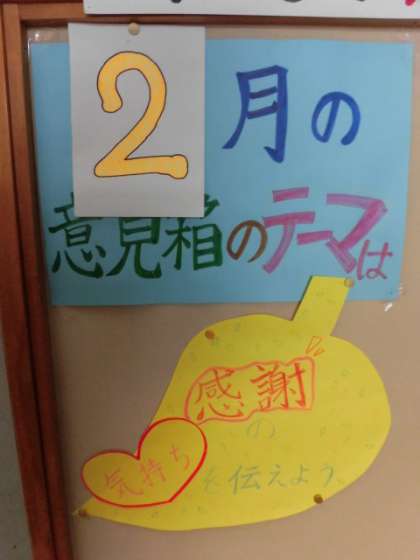 2月の
意見箱のテーマは
感謝
の
気持ちを伝えよう